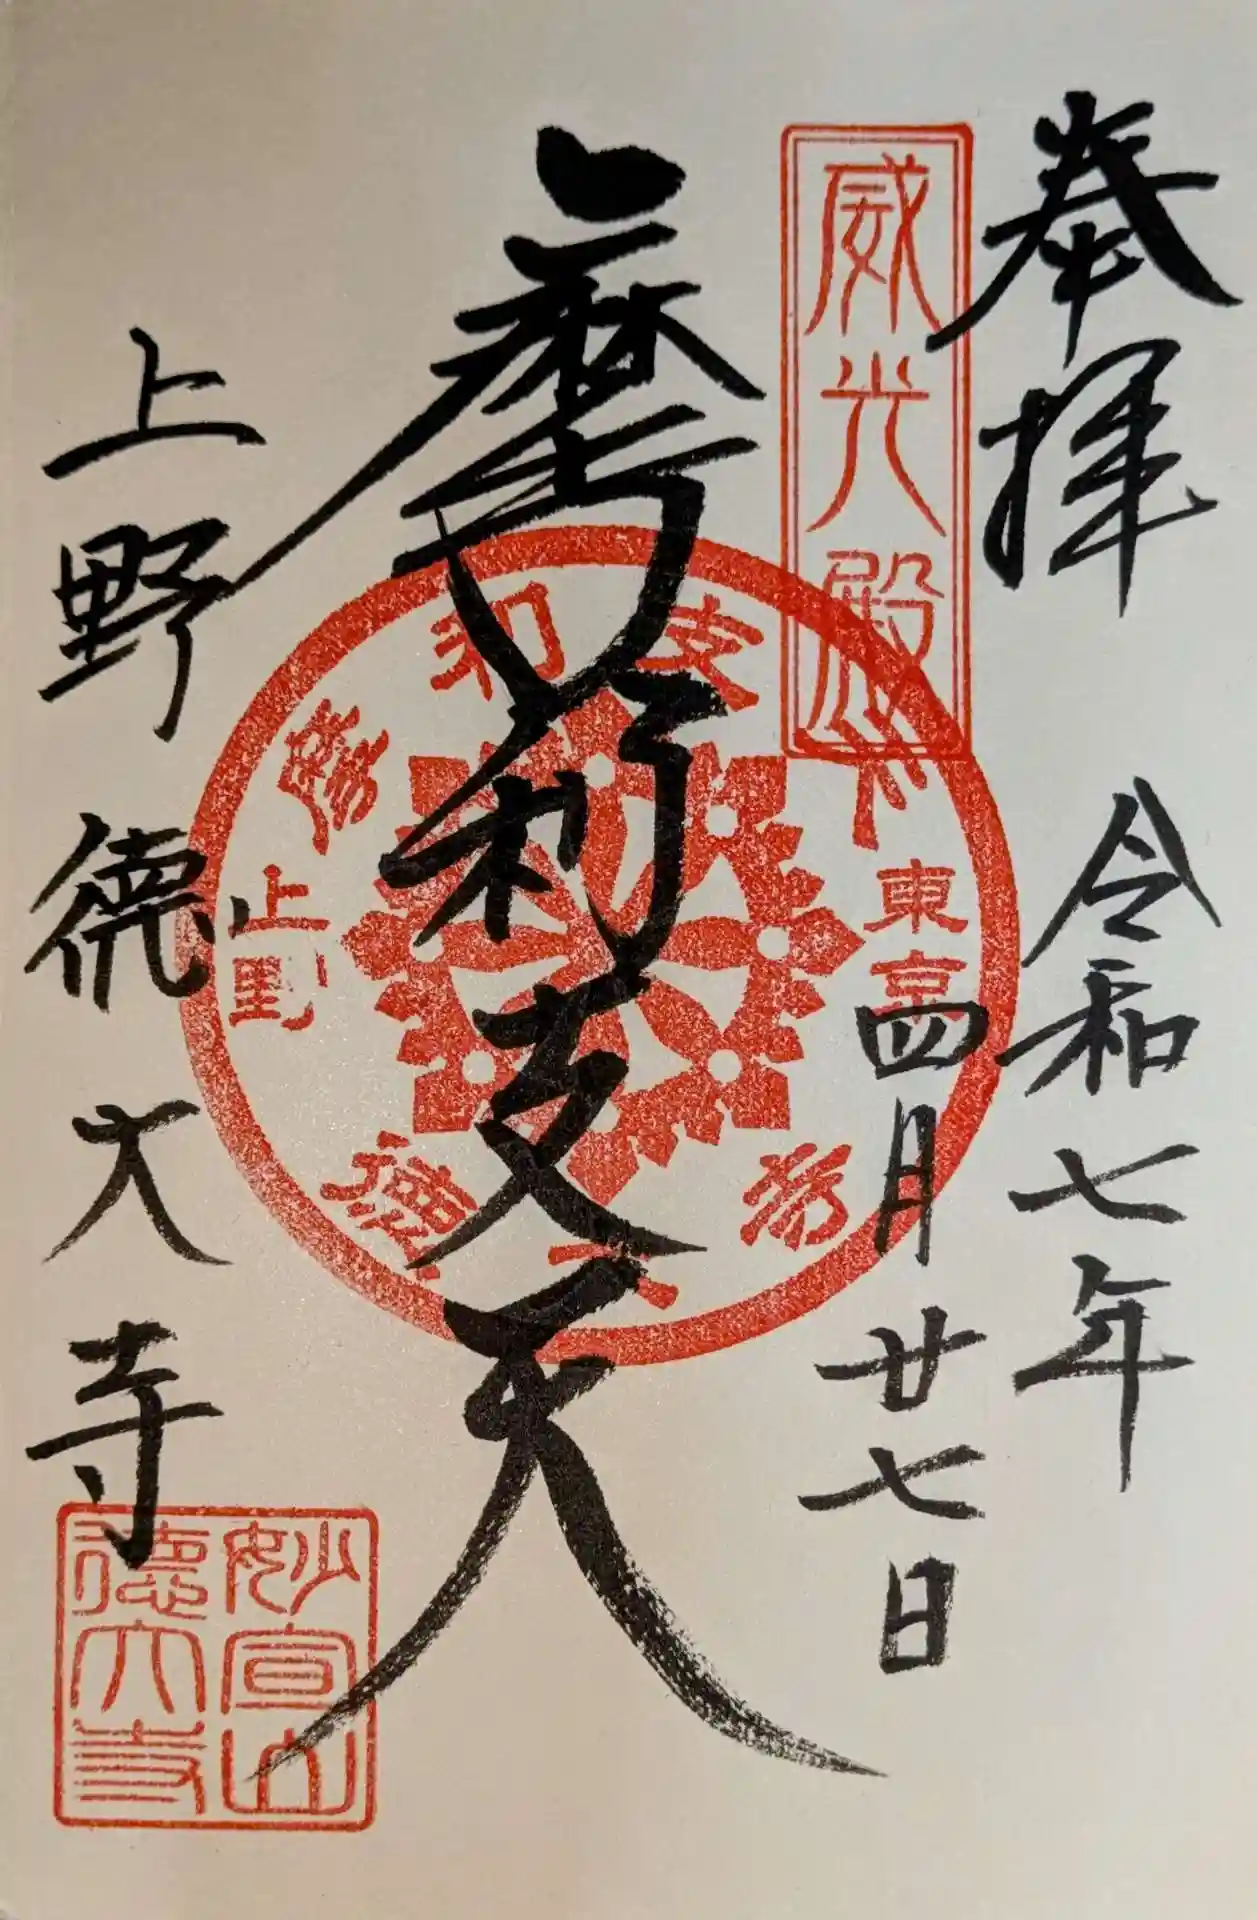 奉拝
令和七年
四月廿七日
威光殿
摩利支天
摩利支天
東京
上野
徳大寺
上野
徳大寺
妙宣山
徳大寺